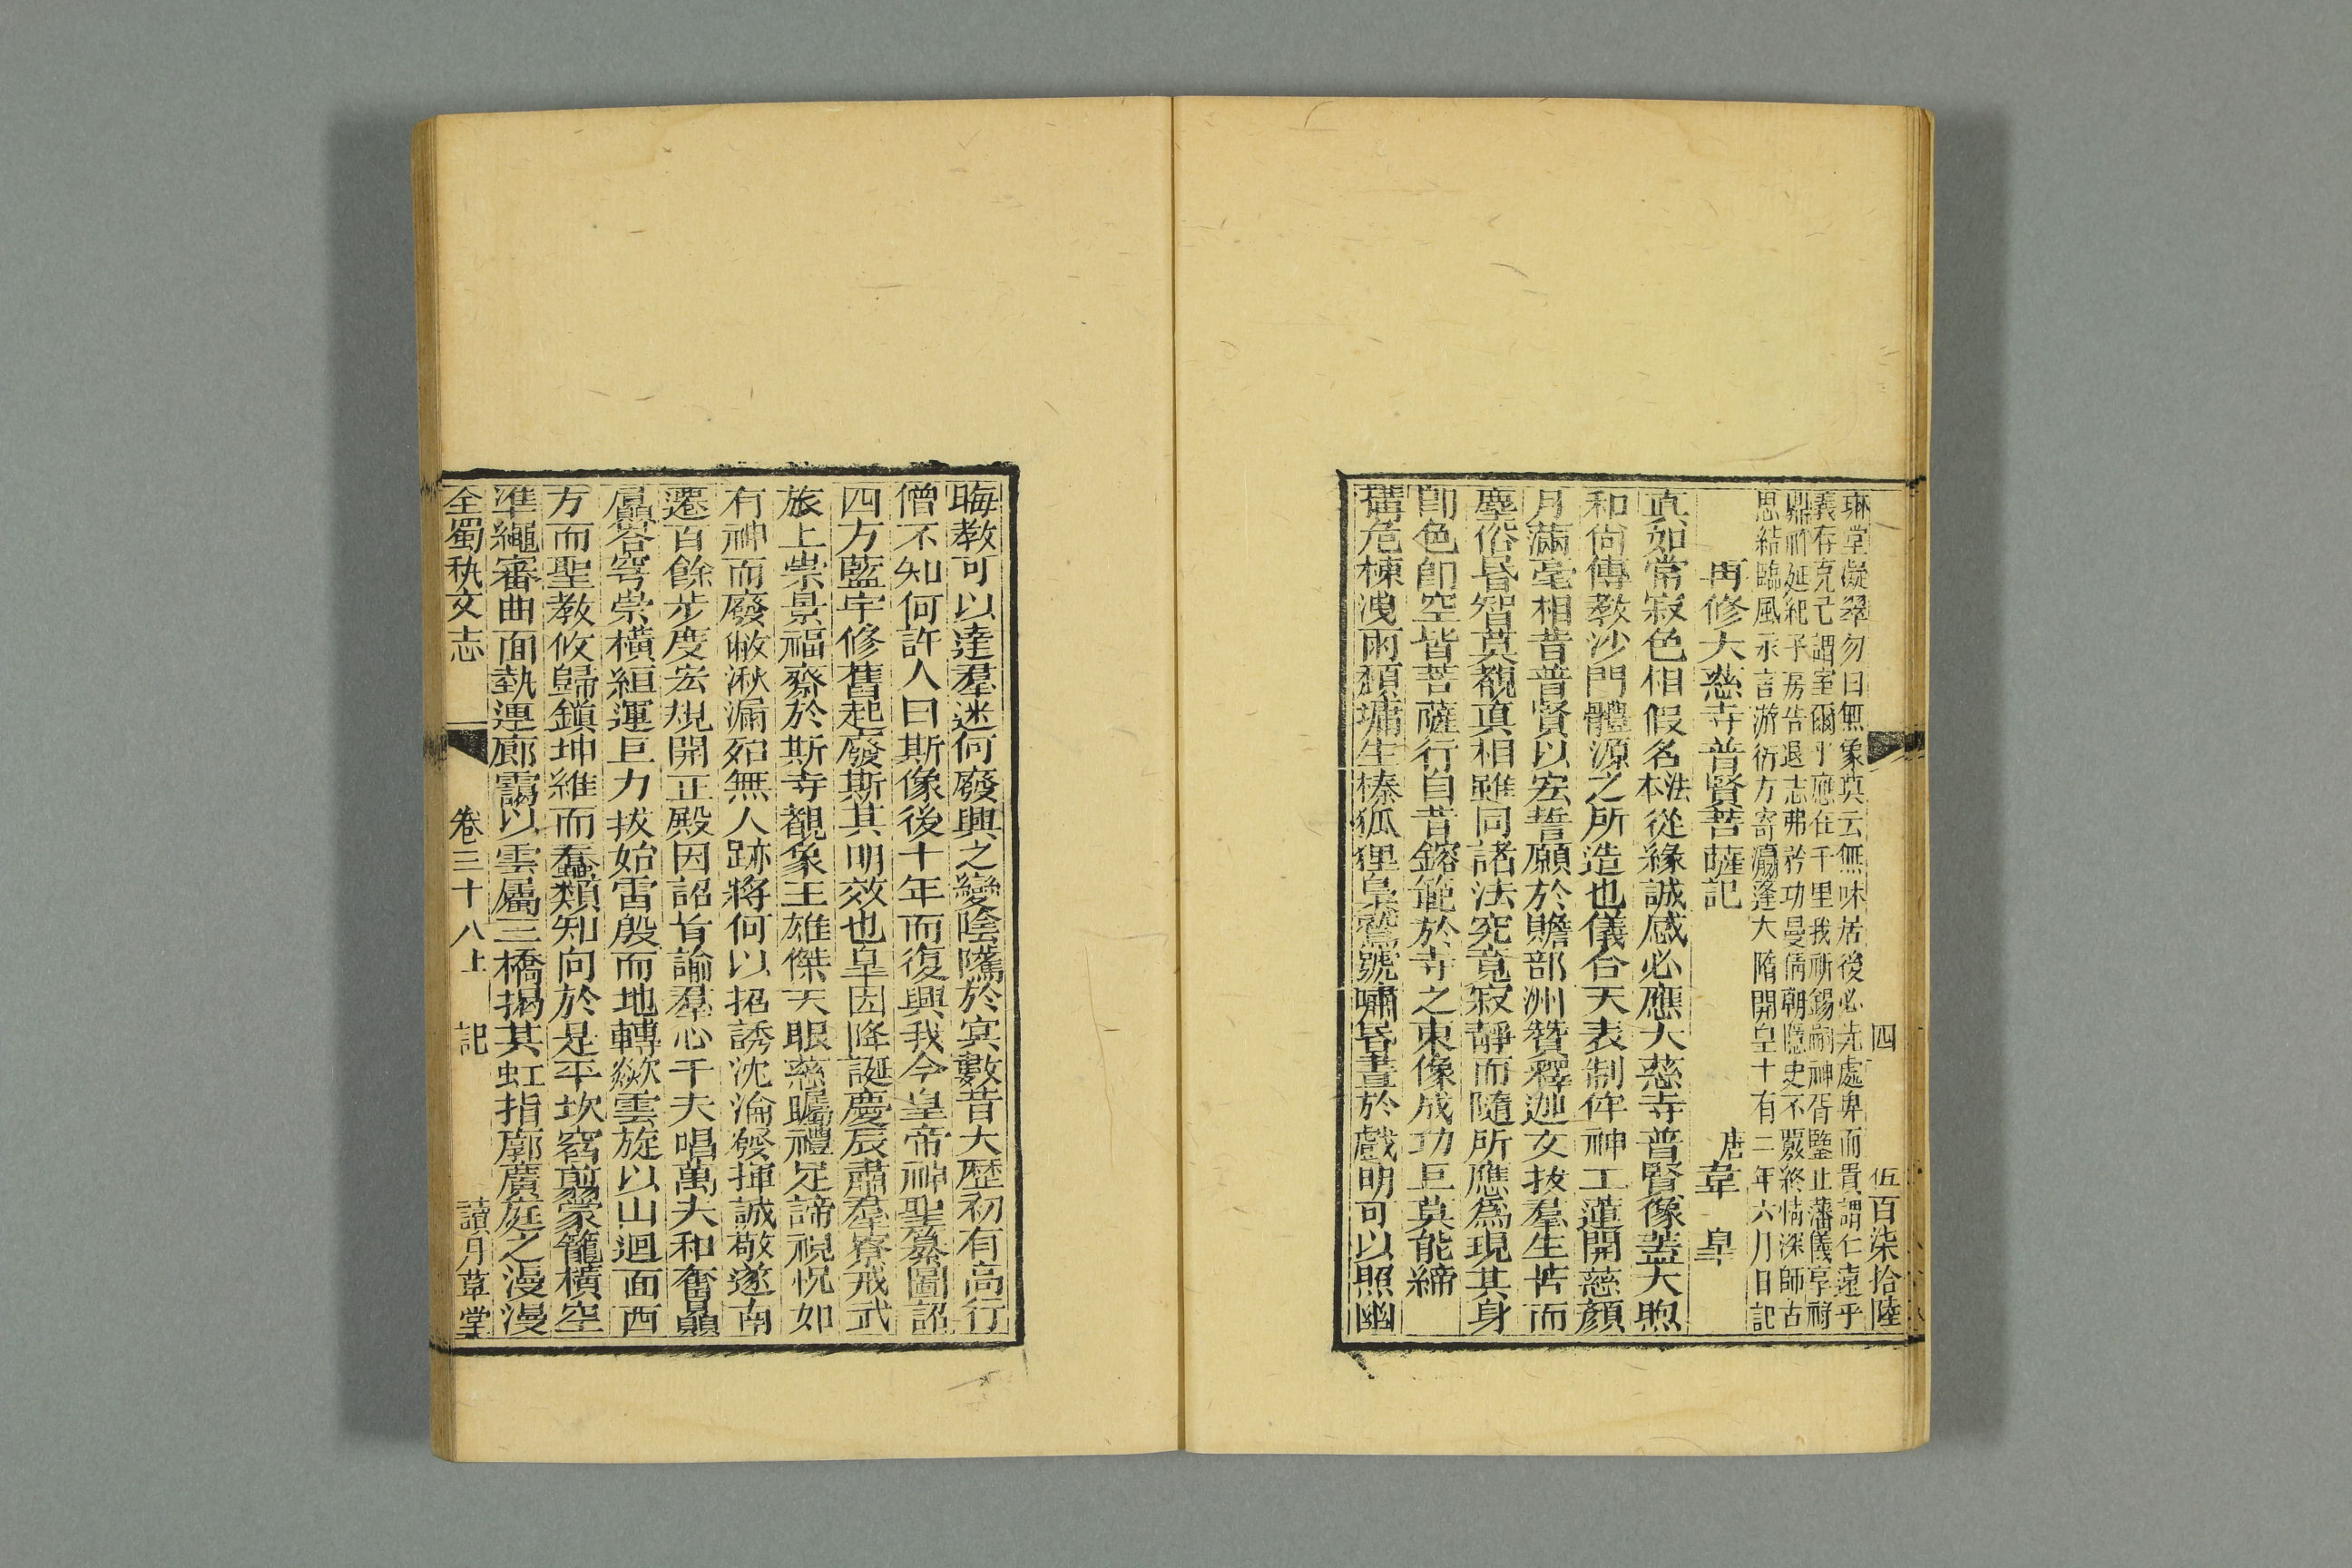 四　伍百柒拾陸
琳堂凝翠勿曰無象莫云無味居後必先處卑而貴謂仁遠乎
義存克己謂室爾乎應在千里我祈錫嗣神胥鑒止藩儀享禱
鼎祚延紀予房告退志弗矜功曼倩朝隱史不覈終情深師古
思結臨風永言游衍方寄瀛蓬大隋開皇十有二年六月日記
再修大慈寺普賢菩薩記　唐韋　皐
眞如常寂色相假名法本從緣誠感必應大慈寺普賢像蓋大照
和尙傳教沙門體源之所造也儀合天表制侔神工蓮開慈顏
月滿毫相昔普賢以宏誓願於贍部洲贊釋迦文拔羣生苦而
塵俗昬智莫覩眞相雖同諸法究竟寂靜而隨所應爲現其身
卽色卽空皆菩薩行自昔鎔範於寺之東像成功巨莫能締
構危棟洩雨頹墉生榛狐狸梟鶩號嘯昬晝於戲明可以照幽
晦教可以達羣迷何廢興之變陰騭於冥數昔大歷初有高行
僧不知何許人曰斯像後十年而復興我今皇帝神聖纂圖詔
四方藍宇修舊起廢斯其明效也皐因降誕慶辰肅羣寮戒武
旅上崇景福齋於斯寺觀象王雄傑天眼慈矚禮足諦視怳如
有神而廢敝湫漏殆無人跡將何以招誘沈淪發揮誠敬遂南
遷百餘步度宏規開正殿因詔旨諭羣心千夫唱萬夫和奮贔
屭呇穹崇橫絙運巨力拔始雷殷而地轉歘雲旋以山迴面西
方而聖教攸歸鎭坤維而蠢類知向於是平坎窞翦蒙籠橫空
準繩審曲面埶連廊靄以雲屬三橋揭其虹指廓廣庭之漫漫
全蜀秇文志　卷三十八上　記　讀月草堂